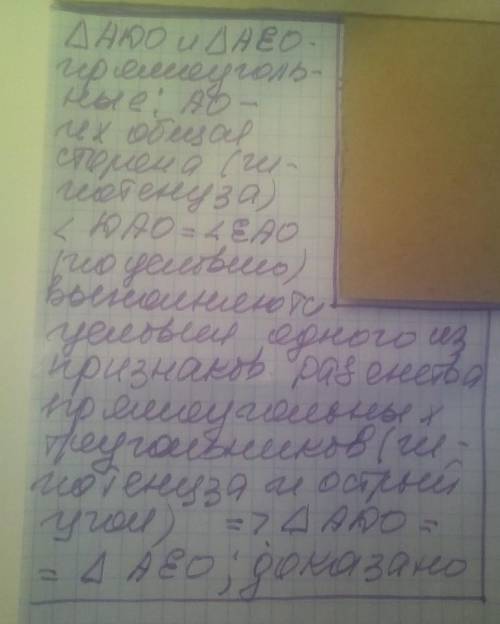 △АДО и △АЕО -
прямоуголь-
ные; АО -
их общая
сторона (ги-
потенуза)
∠ДАО = ∠ЕАО
(по условию)
выполняются
условия одного из
признаков равенства
прямоугольных
треугольников (ги-
потенуза и острый
угол) => △АДО =
= △АЕО; доказано